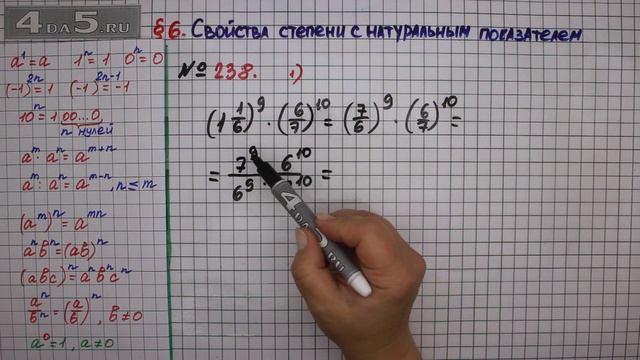 4DA5.RU
§ 6. Свойства степени с натуральным показателем
a¹ = a 1ⁿ = 1 0ⁿ = 0
(-1)²ⁿ = 1 (-1)²ⁿ⁻¹ = -1
10ⁿ = 1 00...0,
n нулей
aᵐ · aⁿ = aᵐ⁺ⁿ
aᵐ : aⁿ = aᵐ⁻ⁿ, n ≤ m
(aᵐ)ⁿ = aᵐⁿ
aⁿbⁿ = (ab)ⁿ
(abc)ⁿ = aⁿbⁿcⁿ
aⁿ/bⁿ = (a/b)ⁿ, b ≠ 0
a⁰ = 1, a ≠ 0
№ 238. 1)
(1 1/6)⁹ · (6/7)¹⁰ = (7/6)⁹ · (6/7)¹⁰ =
= 7⁹ 6¹⁰ / 6⁹ · ¹⁰ =
4DA5.RU